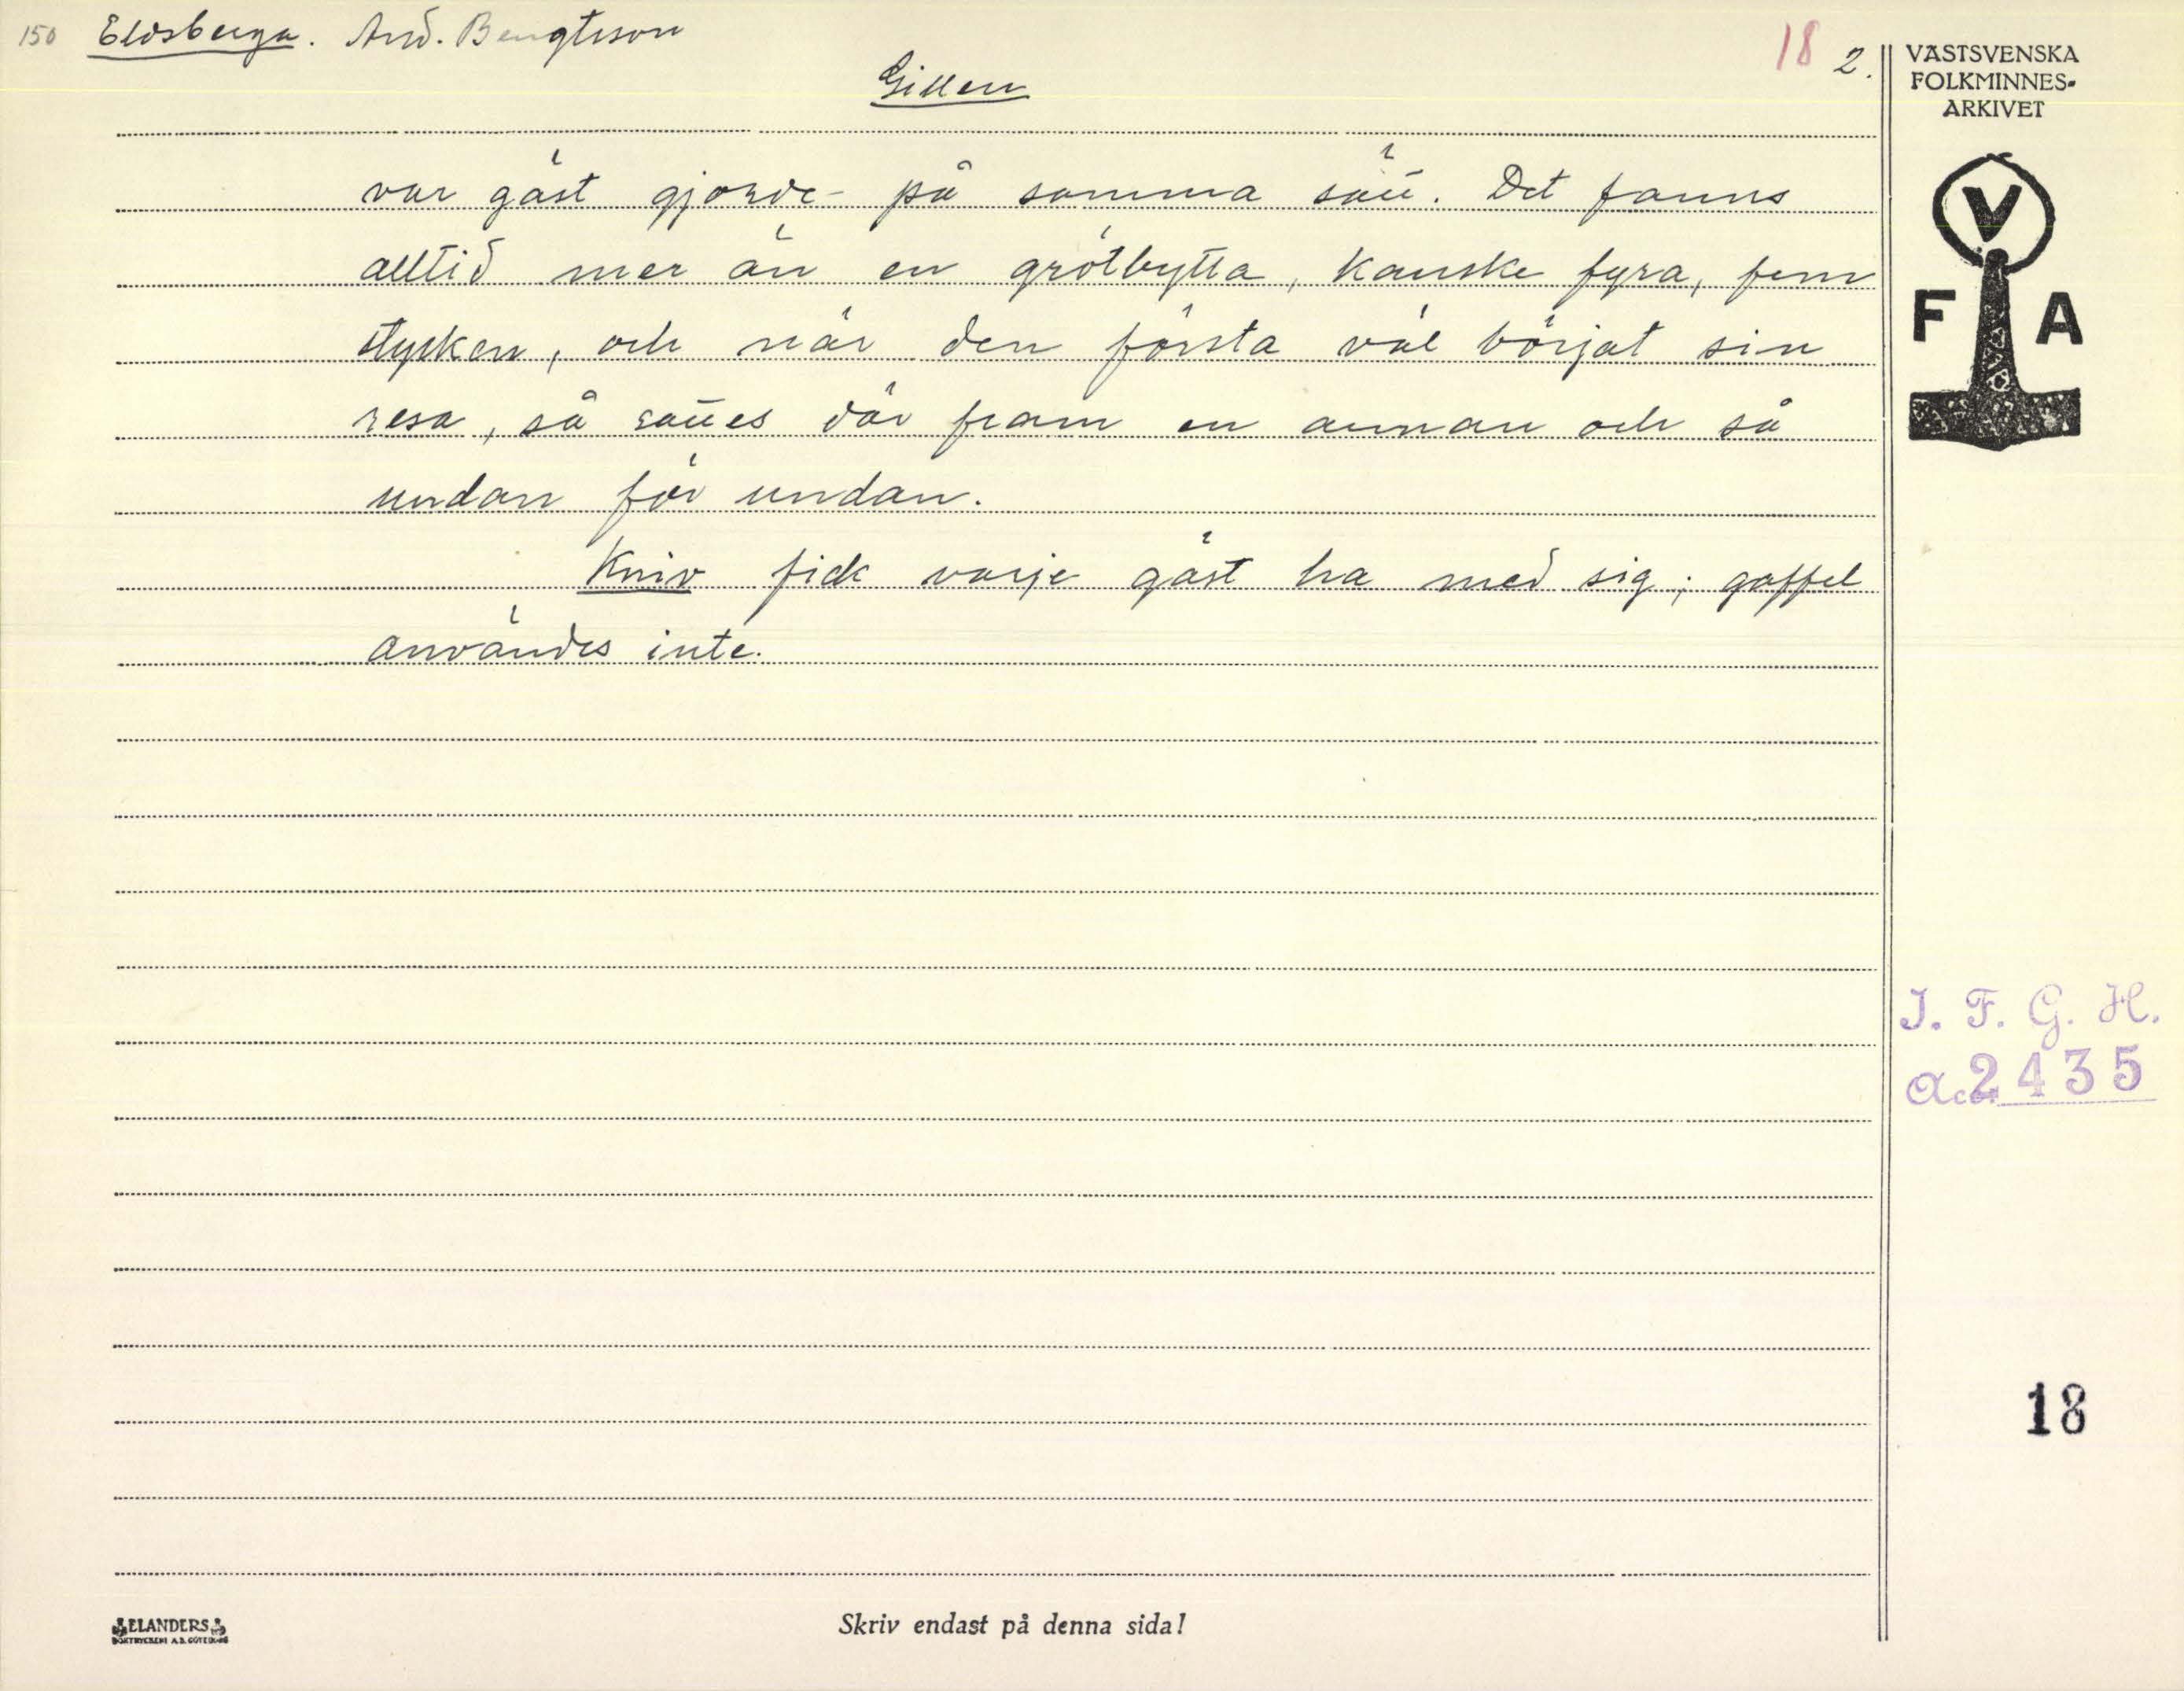 150 Eldsberga. And. Bengtsson
18 2.
Gillen
var gäst gjorde på samma sätt. Det fanns
alltid mer än en grötbytta, kanske fyra, fem
stycken, och när den första väl börjat sin
resa, så sattes där fram en annan och så
undan för undan.
Kniv fick varje gäst ha med sig; gaffel
användes inte.
VÄSTSVENSKA
FOLKMINNES-
ARKIVET
V
F A
I. F. G. H.
Acc. 2435
18
ELANDERS
BOKTRYCKERI A.B. GÖTEBORG
Skriv endast på denna sida!